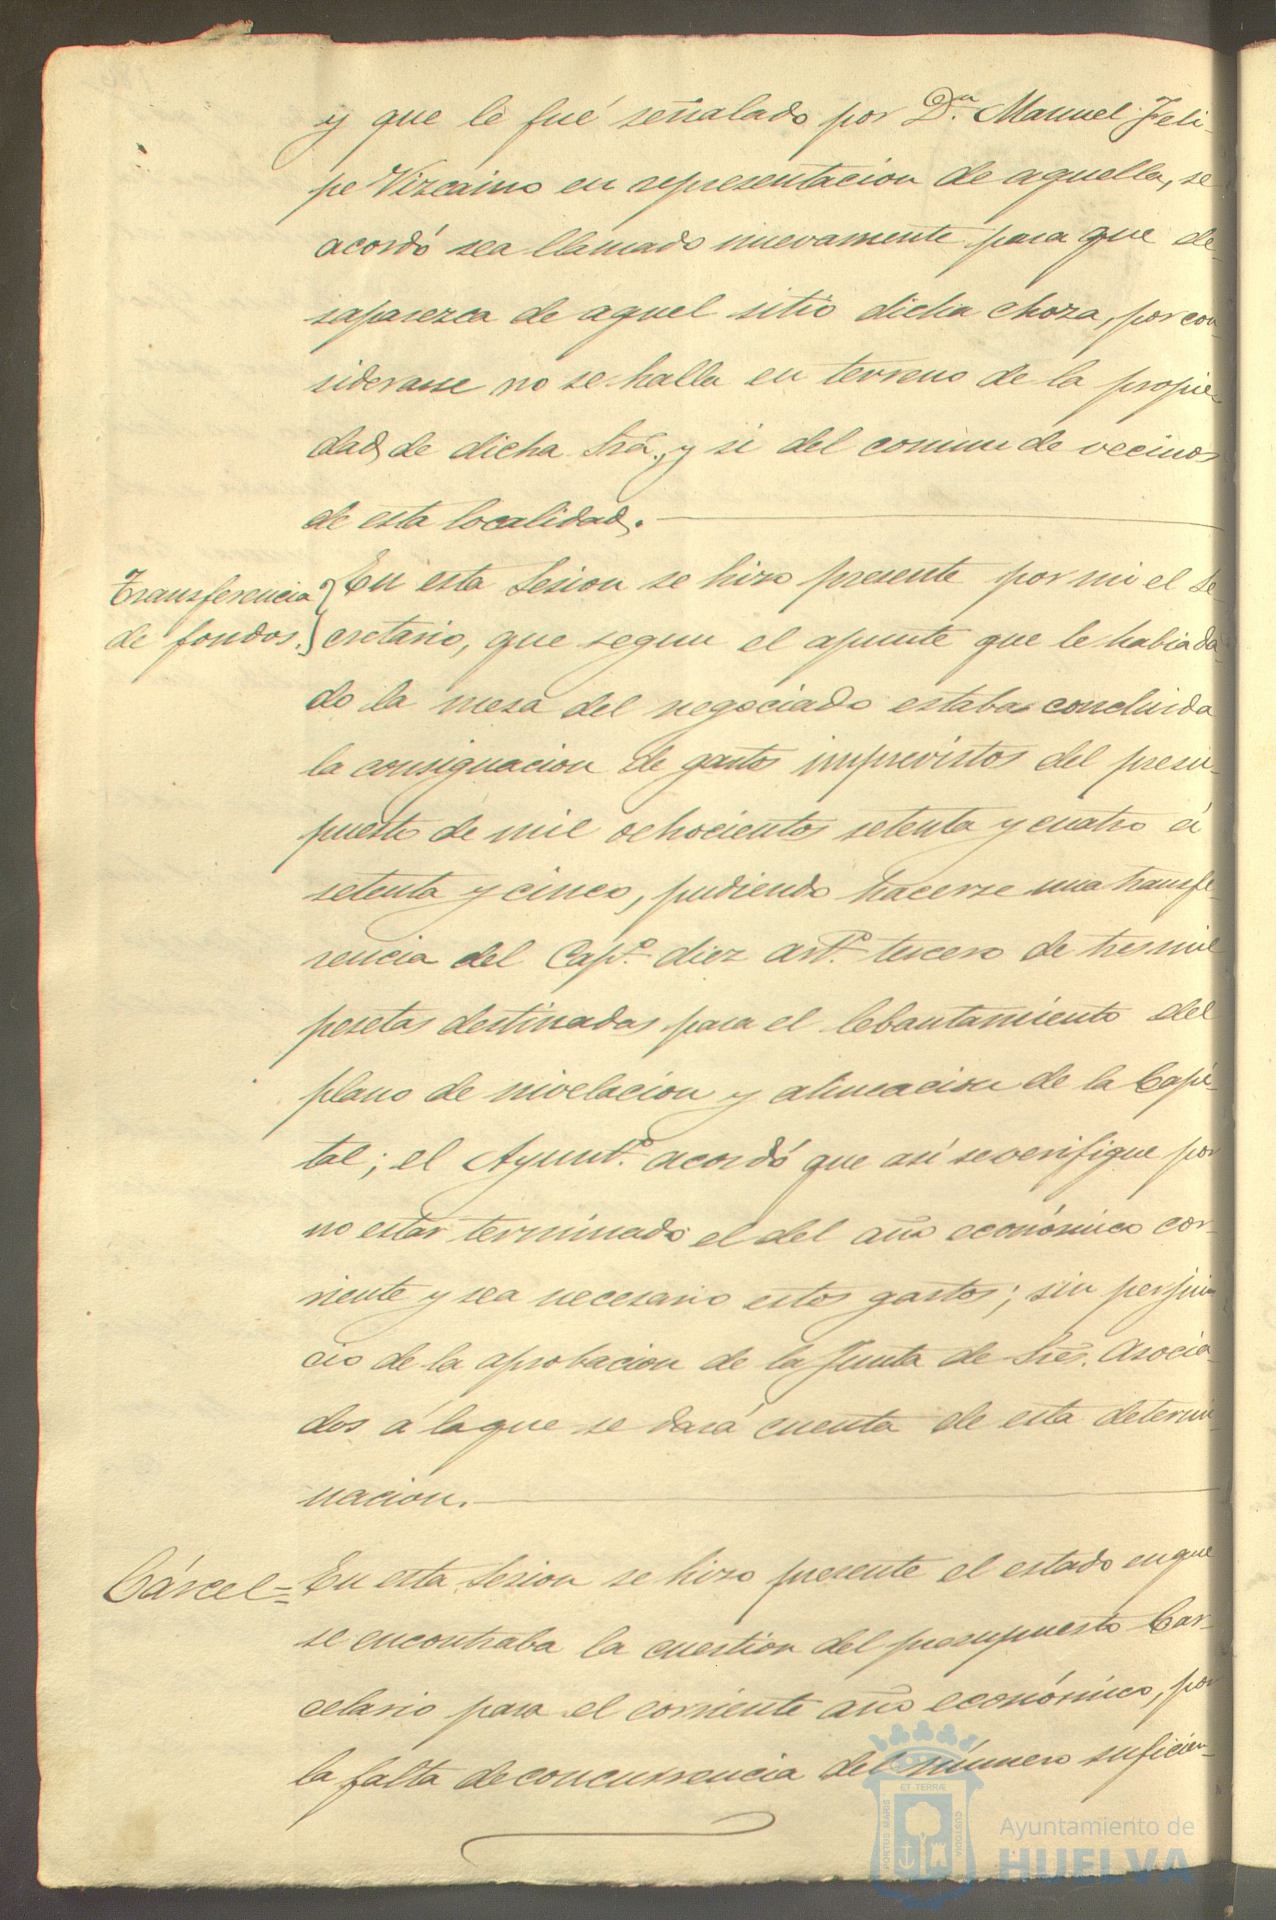 y que le fué señalado por Dn. Manuel Feli-
pe Vizcaino en representacion de aquella, se
acordó sea llamado nuevamente para que de-
saparezca de aquel sitio dicha choza, por con-
siderarse no se halla en terreno de la propie-
dad de dicha Sra., y si del comun de vecinos
de esta localidad.
Transferencia
de fondos.
En esta Sesion se hizo presente por mi el Se-
cretario, que segun el apunte que le habia da-
do la mesa del negociado estaba concluida
la consignacion de gastos imprevistos del presu-
puesto de mil ochocientos setenta y cuatro á
setenta y cinco, pudiendo hacerse una transfe-
rencia del Capo. diez arto. tercero de tres mil
pesetas destinadas para el lebantamiento del
plano de nivelacion y alineacion de la Capi-
tal; el Ayunto. acordó que así se verifique por
no estar terminado el del año económico cor-
riente y sea necesario estos gastos; sin perjui-
cio de la aprobacion de la Junta de Sres. Asocia-
dos á la que se dará cuenta de esta determi-
nacion.
Cárcel=
En esta Sesion se hizo presente el estado en que
se encontraba la cuestion del presupuesto Car-
celario para el corriente año económico, por
la falta de concurrencia del número suficien-
ET TERRÆ
PORTUS MARIS
CUSTODIA
Ayuntamiento de
HUELVA